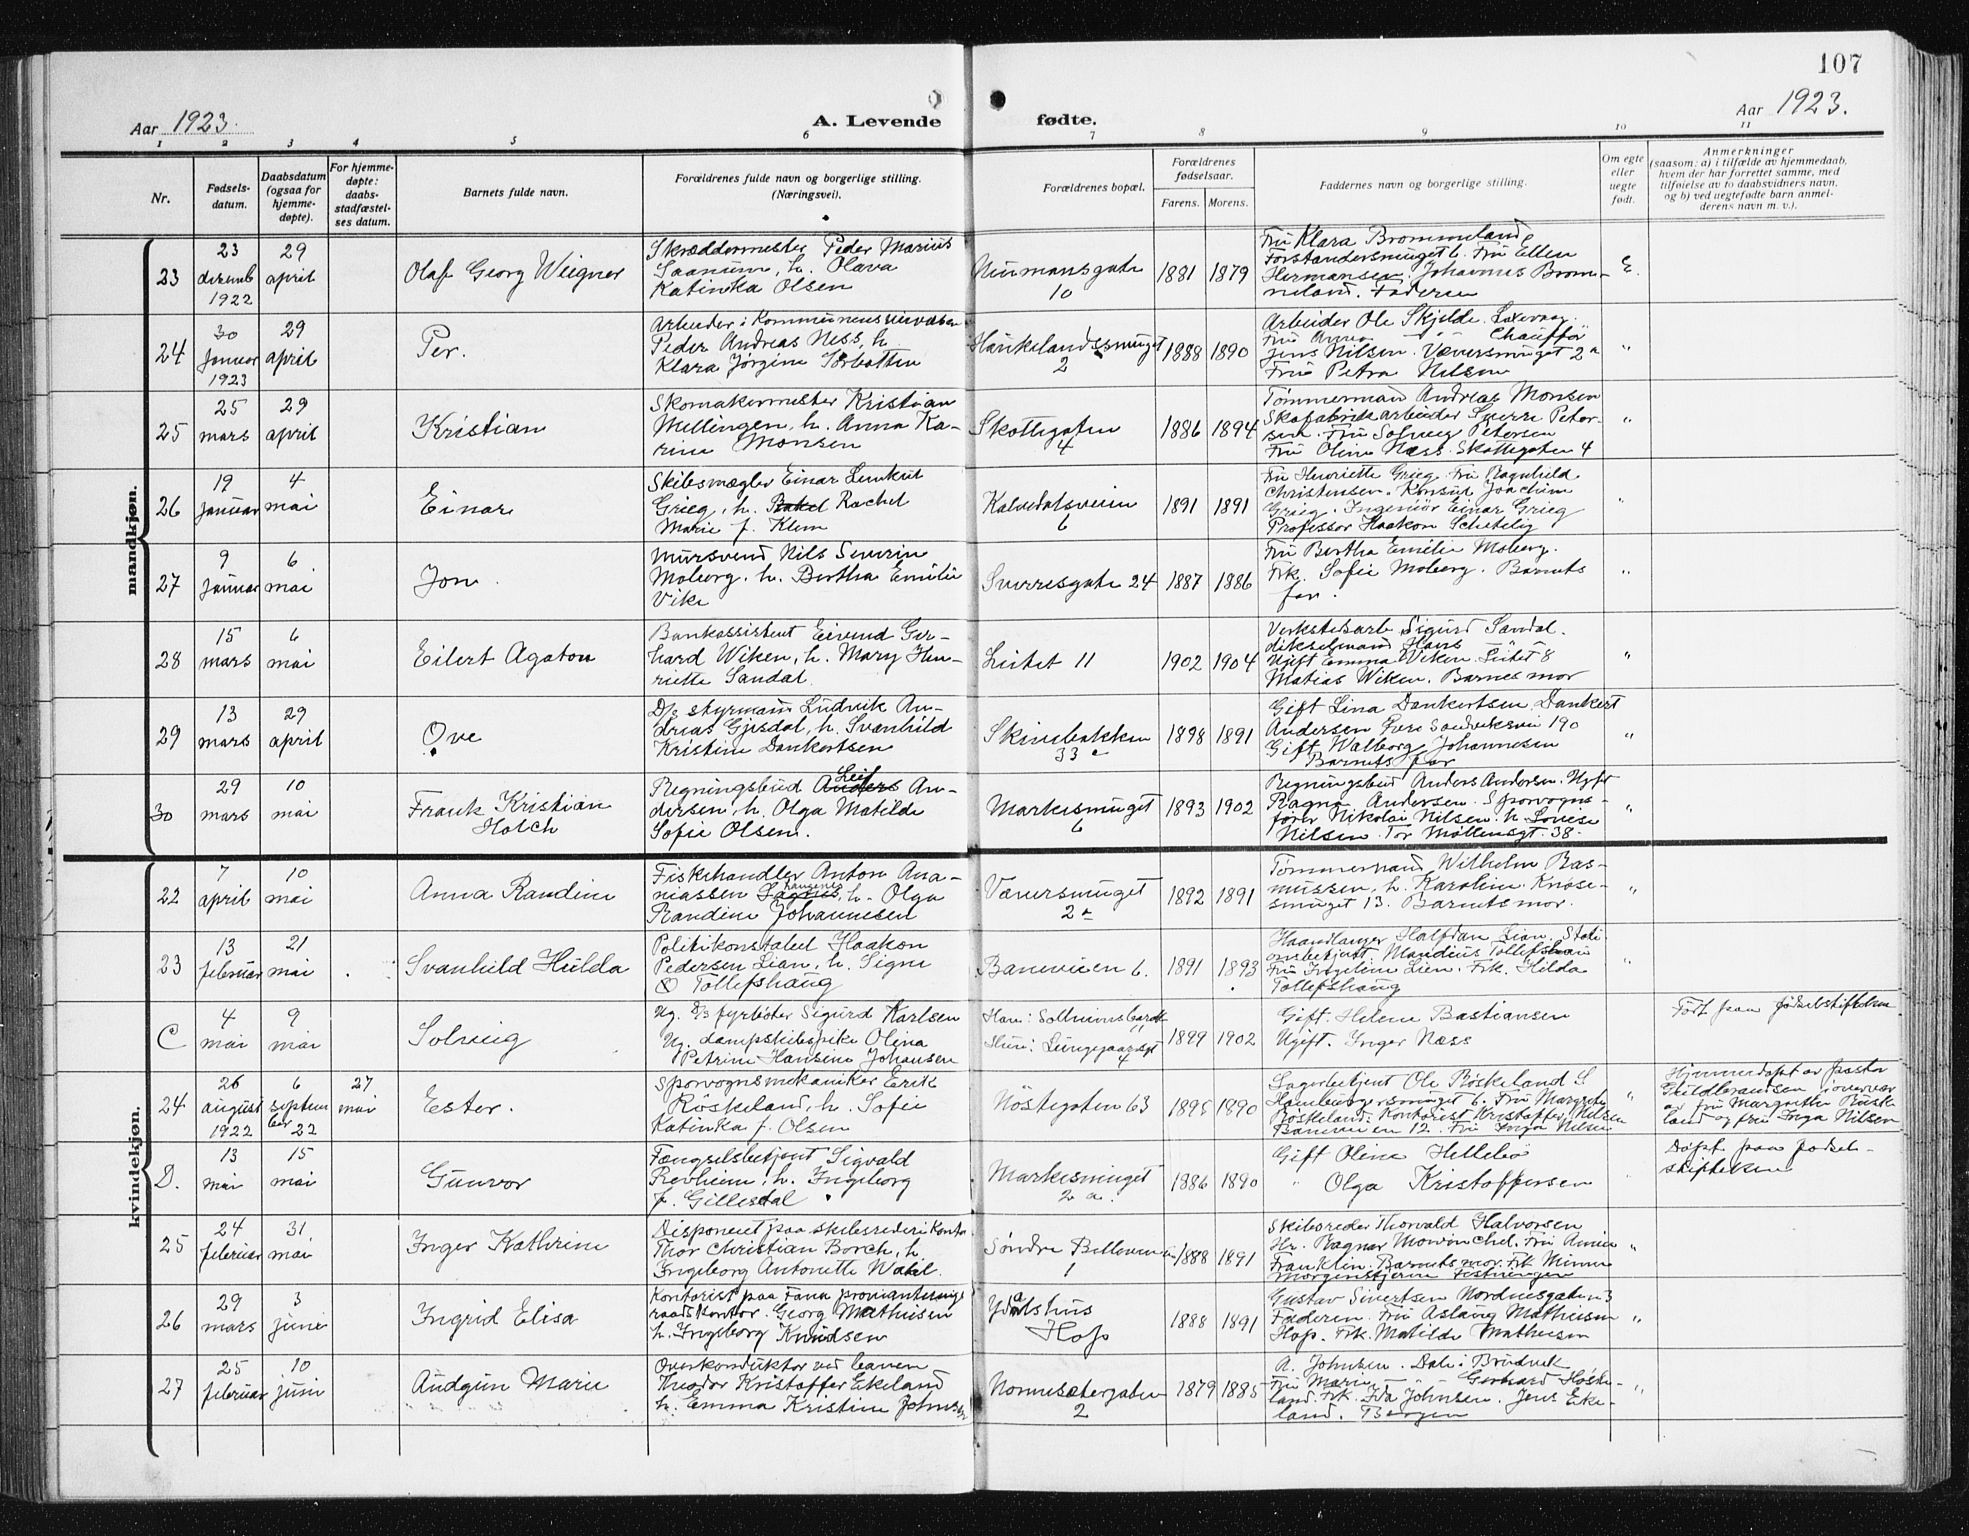 107
Aar 1923.
A. Levende
fødte.
Aar 1923.
1 2 3 4 5 6 7 8 9 10 11
Nr.
Fødsels-
datum.
Daabsdatum
(ogsaa for
hjemme-
døpte).
For hjemme-
døpte:
daabs-
stadfæstel-
ses datum.
Barnets fulde navn.
Forældrenes fulde navn og borgerlige stilling.
(Næringsvei).
Forældrenes bopæl.
Forældrenes
fødselsaar.
Farens. Morens.
Faddernes navn og borgerlige stilling.
Om egte
eller
uegte
født.
Anmerkninger
(saasom: a) i tilfælde av hjemmedaab,
hvem der har forrettet samme, med
tilføielse av to daabsvidners navn,
og b) ved uegtefødte barn anmel-
derens navn m. v.).
mandkjøn.
23
23
decemb
1922
29
april
Olaf Georg Wiegner
Skræddermester Peder Marius
Saanum, h. Olava
Katinka Olsen
Neumansgate
10
1881 1879
Fru Klara Brommeland,
Forstandersmuget 6. Fru Ellen
Hermansen. Johannes Brom-
meland. Faderen
E.
24
30
januar
1923
29
april
Per.
Arbeider i Kommunens
Peder Andreas Ness, h
Klara Jørgine Sørbotten
Haukelandssmuget
2
1888 1890
Arbeider Ole Skjelde. Laxevaag.
Fru Anna " Chauffør
Jens Nilsen. Væversmuget 2a
Fru Petra Nilsen
"
25
25
mars
29
april
Kristian
Skomakermester Kristian
Mellingen, h. Anna Ka-
rine Monsen
Skottegaten
4
1886 1894
Tømmermand Andreas Monsen
Skofabrikarbeider Sverre Peter-
sen. Fru Solveig Petersen
Fru Oline Næss. Skottegaten 4
"
26
19
januar
4
mai
Einar
Skibsmægler Einar Lemkul
Grieg, h. Rakel Rachel
Marie f. Klem
Kalvedalsveien
6
1891 1891
Fru Henriette Grieg. Fru Ragnhild
Christensen. Konsul Joachim
Grieg. Ingeniør Einar Grieg
Professor Haakon Schetelig
"
27
9
januar
6
mai
Jon.
Mursvend Nils Severin
Moberg, h. Bertha Emilie
Vike
Sverresgate 24
1887 1886
Fru Bertha Emilie Moberg.
Frk. Sofie Moberg. Barnets
far.
"
28
15
mars
6
mai
Eilert Agaton
Bankassistent Eivind Ger-
hard Wiken, h. Mary Hen-
riette Sandal
Leitet 11
1902 1904
Verkstedsarb. Sigurd Sandal.
Hans
Ugift Emma Wiken. Leitet 8
Matias Wiken. Barnes mor
"
29
13
mars
29
april
Ove
D/s styrmann Ludvik An-
dreas Gjesdal, h. Svanhild
Kristine Dankertsen
Skivebakken
33 c
1898 1891
Gift Lina Dankertsen. Dankert
Andersen Øvre Sandviksvei 190
Gift Walborg Johannesen
Barnets far
"
30
29
mars
10
mai
Frank Kristian
Holck
Regningsbud Anders Leif An-
dersen, h. Olga Matilde
Sofie Olsen.
Markesmuget
6
1893 1902
Regningsbud Anders Andersen. Ugift
Ragna Andersen. Sporvogns-
fører Nikolai Nilsen. h. Lovise
Nilsen. Tor Møllensgt. 38.
"
kvindekjøn.
22
7
april
10
mai
Anna Randine
Fiskehandler Anton Ana-
niassen Langenes, h. Olga
Randine Johannesen
Væversmuget
2a
1892 1891
Tømmermand Wilhelm Ras-
mussen, h. Karoline. Knøse-
smuget 13. Barnets mor.
"
23
13
februar
21
mai
Svanhild Hulda
Politikonstabel Haakon
Pedersen Lian, h. Signe
Tollefshaug
Baneveien 6.
1891 1893
Haandlanger Halfdan Lian. Stati-
onsbetjent. Mandius Tollefshaug
Fru Ingeline Lien. Frk. Hilda
Tollefshaug
"
C
4
mai
9
mai
Solveig
Ug. D/s fyrbøter Sigurd Karlsen
Ug. dampskibspike Olina
Petrine Hansine Johansen
Han: Solheimsgaten
11
Hun: Lungegaardsgt
4
1899 1902
Gift. Helene Bastiansen
Ugift. Inger Næss
Født paa fødselstiftelsen
24
26
august
1922
6
septem
ber
22
27
mai
Ester.
Sporvognsmekaniker Erik
Røskeland, h. Sofie
Katinka f. Olsen
Nøstegaten 63
1895 1890
Lagerbetjent Ole Røskeland S.
Hamburgersmuget 6. Fru Margrete
Røskeland. Kontorist Kristoffer Nilsen
Baneveien 12. Fru Inga Nilsen
"
Hjemmedøpt av pastor
Guldbrandsen i overvær
av fru Margrethe Røske-
land og fru Inga Nilsen
D.
13
mai
15
mai
Gunvor
Fængselsbetjent Sigvald
Revheim, h. Ingeborg
f. Gillesdal
Markesmuget
2 a.
1886 1890
Gift Olina Hellebø
" Olga Kristoffersen
"
Døpt paa fødsel-
stiftelsen
25
24
februar
31
mai
Inger Kathrine
Disponent paa skibsrederikontor
Thor Christian Borch, h.
Ingeborg Antonette Wahl.
Søndre Bellevuevei
1
1888 1891
Skibsreder Thorvald Halvorsen
Hr. Ragnar Mowinckel. Fru Annie
Franklin. Barnets mor. Frk. Minna
Morgenstjerne
"
26
29
mars
3
juni
Ingrid Elisa
Kontorist paa Fana provianterings
raadskontor. Georg Mathiesen
h. Ingeborg Knudsen
Ydalshus
Hop
1888 1891
Gustav Sivertsen Nordnesgaten 3
Faderen. Fru Aslaug Mathiesen
Hop. Frk. Matilde Mathiesen
"
27
25
februar
10
juni
Audgun Marie
Overkonduktør ved banen
Theodor Kristoffer Ekeland
h. Emma Kristine Johnsen
Nonnesætergaten
2
1879 1885
A. Johnsen. Dale i Bruvik
Fru Marie " Gerhard Høske-
land. Frk. Ida Johnsen. Jens Eke-
land. Bergen
"